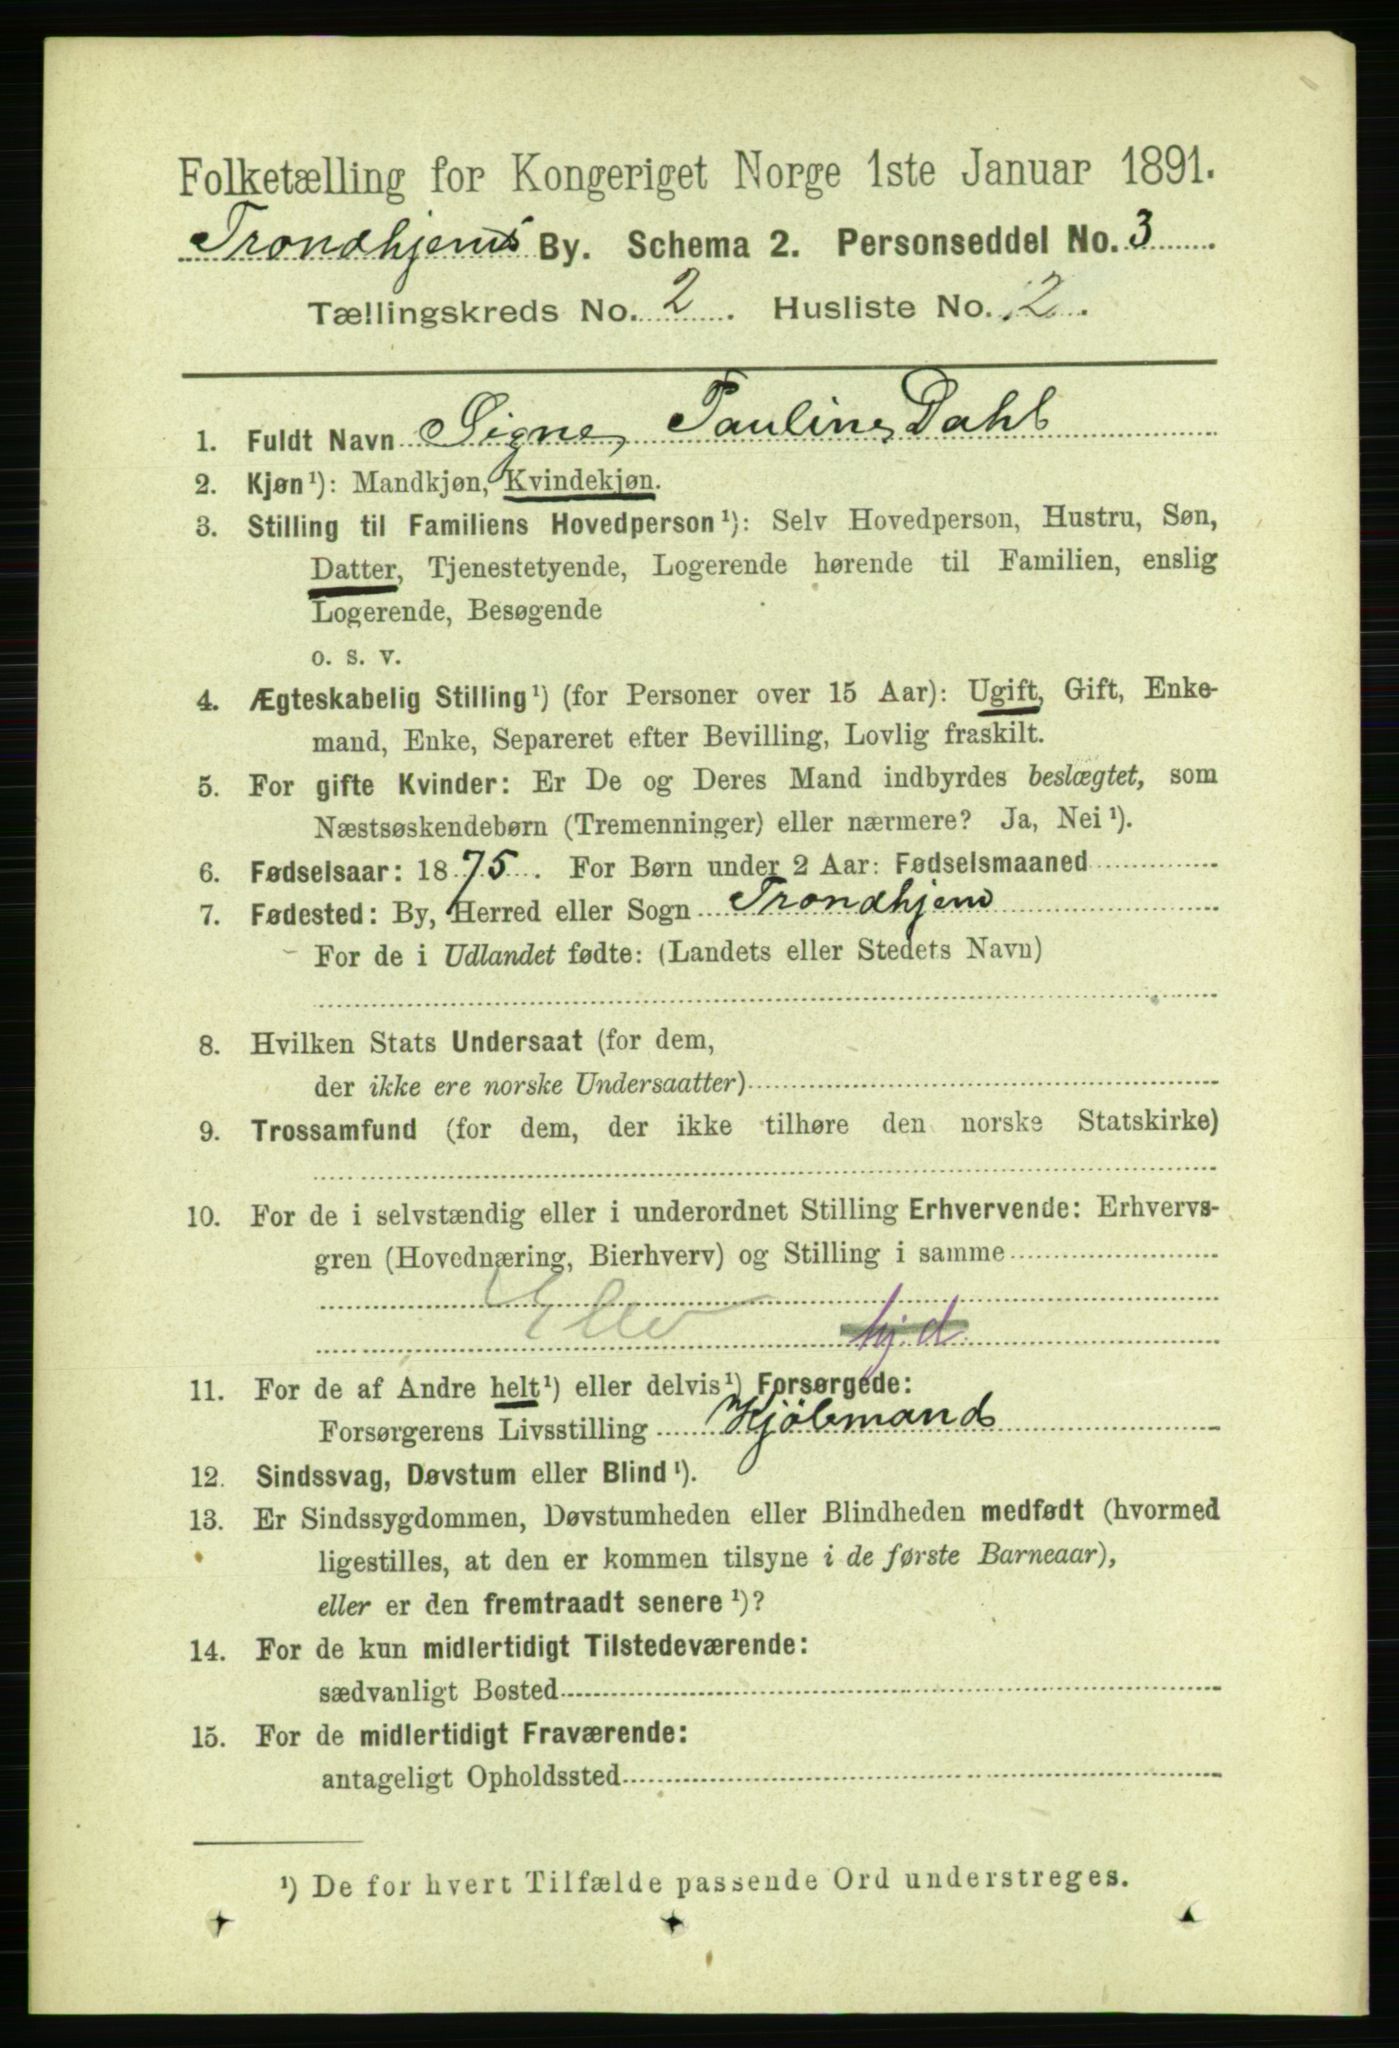 Folketælling for Kongeriget Norge 1ste Januar 1891.
Trondhjems By. Schema 2. Personseddel No. 3
Tællingskreds No. 2. Husliste No. 2.
1. Fuldt Navn Signe Pauline Dahl
2. Kjøn¹): Mandkjøn, Kvindekjøn.
3. Stilling til Familiens Hovedperson¹): Selv Hovedperson, Hustru, Søn,
Datter, Tjenestetyende, Logerende hørende til Familien, enslig
Logerende, Besøgende
o. s. v.
4. Ægteskabelig Stilling¹) (for Personer over 15 Aar): Ugift, Gift, Enke-
mand, Enke, Separeret efter Bevilling, Lovlig fraskilt.
5. For gifte Kvinder: Er De og Deres Mand indbyrdes beslægtet, som
Næstsøskendebørn (Tremenninger) eller nærmere? Ja, Nei¹).
6. Fødselsaar: 1875. For Børn under 2 Aar: Fødselsmaaned
7. Fødested: By, Herred eller Sogn Trondhjem
For de i Udlandet fødte: (Landets eller Stedets Navn)
8. Hvilken Stats Undersaat (for dem,
der ikke ere norske Undersaatter)
9. Trossamfund (for dem, der ikke tilhøre den norske Statskirke)
10. For de i selvstændig eller i underordnet Stilling Erhvervende: Erhvervs-
gren (Hovednæring, Bierhverv) og Stilling i samme
hj. d
11. For de af Andre helt¹) eller delvis¹) Forsørgede:
Forsørgerens Livsstilling Kjöbmand
12. Sindssvag, Døvstum eller Blind¹).
13. Er Sindssygdommen, Døvstumheden eller Blindheden medfødt (hvormed
ligestilles, at den er kommen tilsyne i de første Barneaar),
eller er den fremtraadt senere¹)?
14. For de kun midlertidigt Tilstedeværende:
sædvanligt Bosted
15. For de midlertidigt Fraværende:
antageligt Opholdssted
¹) De for hvert Tilfælde passende Ord understreges.